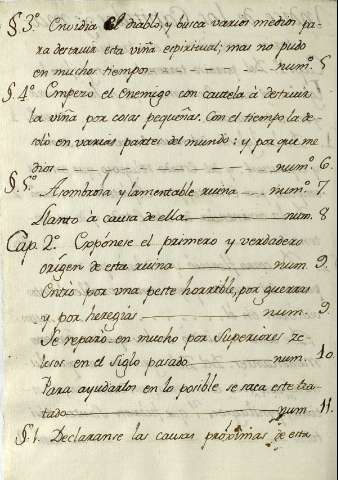 § 3.º Envidia el diablo, y busca varios medios pa-
ra destruir esta viña espiritual; mas no pudo
en muchos tiempos num.º 5
§. 4.º Empezò el Enemigo con cautela à destruir
la viña por cosas pequeñas. Con el tiempo la de-
solò en varias partes del mundo: y por que me-
dios num.º 6.
§. 5.º Asombrosa y lamentable ruina num.º 7
Llanto à causa de ella num. 8
Cap. 2.º Proponese el primero y verdadero
origen de esta ruina num. 9.
Entrò por una peste horrible, por guerras
y por heregias num. 9
Se reparò en mucho por Superiores ze-
losos en el Siglo pasado num. 10
Para ayudarlos en lo posible se saca este tra-
tado num. 11.
§. 1. Declaranse las causas próximas de esta